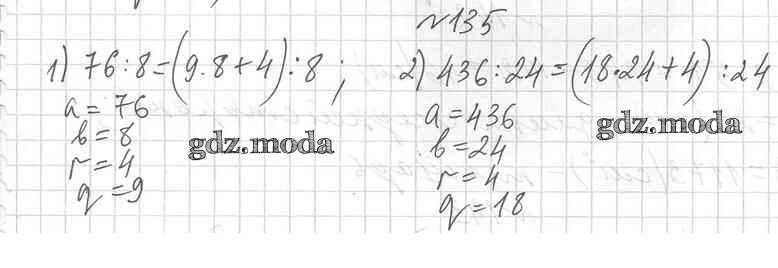 №135
1) 76:8=(9·8+4):8;
a=76
b=8
r=4
q=9
2) 436:24=(18·24+4):24
a=436
b=24
r=4
q=18
gdz.moda
gdz.moda